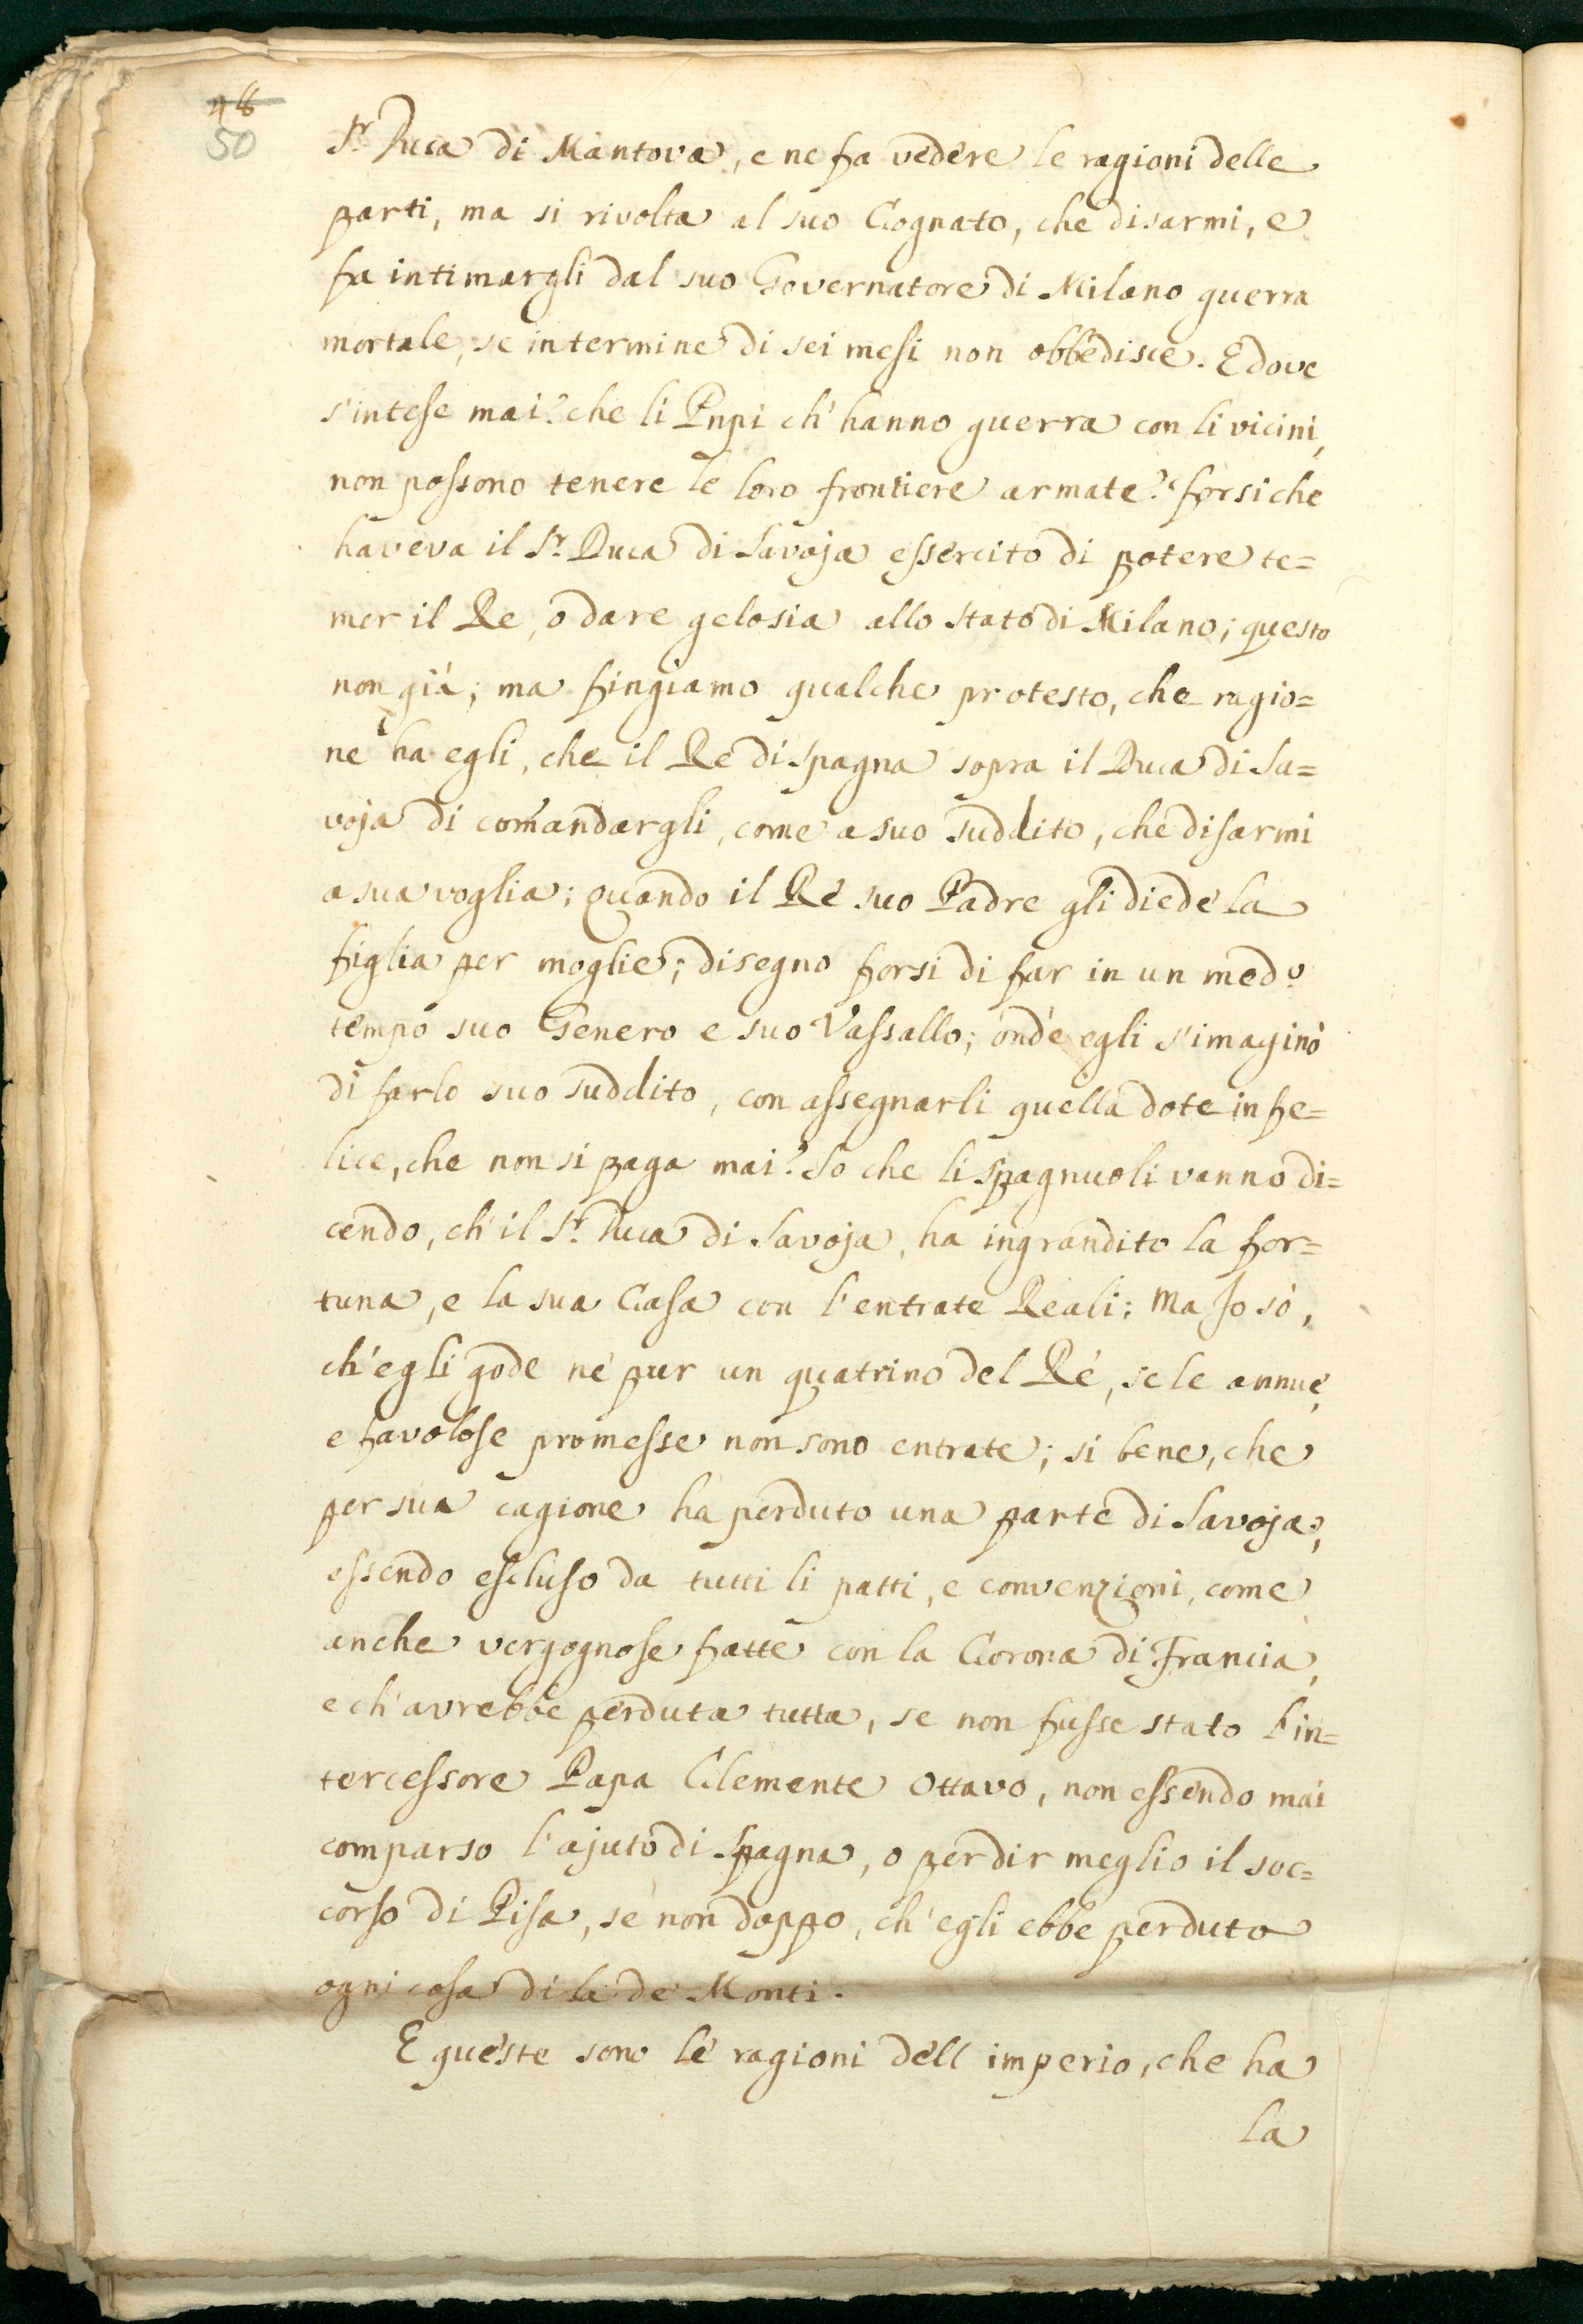 48
50
S.r Duca di Mantova, e ne fa vedere le ragioni delle
parti, ma si rivolta al suo Cognato, che disarmi, e
fa intimargli dal suo Governatore di Milano guerra
mortale, se in termine di sei mesi non obbedisce. E dove
s'intese mai? che li Pnpi ch'hanno guerra con li vicini,
non possono tenere le loro frontiere armate? forsi che
haveva il S.r Duca di Savoja essercito di potere te=
mer il Re, o dare gelosia allo stato di Milano; questo
non già; ma fingiamo qualche protesto, che ragio=
ne ha egli, che il Re di Spagna sopra il Duca di Sa=
voja di comandargli, come a suo suddito, che disarmi
a sua voglia; quando il Rè suo Padre gli diede la
figlia per moglie; disegno forsi di far in un med.o
tempo suo Genero e suo Vassallo; onde egli s'imaginò
di farlo suo suddito, con assegnarli quella dote infe=
lice, che non si paga mai? So che li Spagnuoli vanno di=
cendo, ch'il S.r Duca di Savoja, ha ingrandito la for=
tuna, e la sua Casa con l'entrate Reali; Ma Jo sò,
ch'egli gode nè pur un quatrino del Rè, se le annue,
e favolose promesse non sono entrate; si bene, che
per sua cagione ha perduto una parte di Savoja,
essendo escluso da tutti li patti, e convenzioni, come
anche vergognose fatte con la Corona di Francia,
e ch'avrebbe perduta tutta, se non fusse stato l'in=
tercessore Papa Clemente Ottavo, non essendo mai
comparso l'ajuto di Spagna, o per dir meglio il soc=
corso di Pisa, se non doppo, ch'egli ebbe perduto
ogni cosa di la de Monti.
E queste sono le ragioni dell imperio, che ha
la